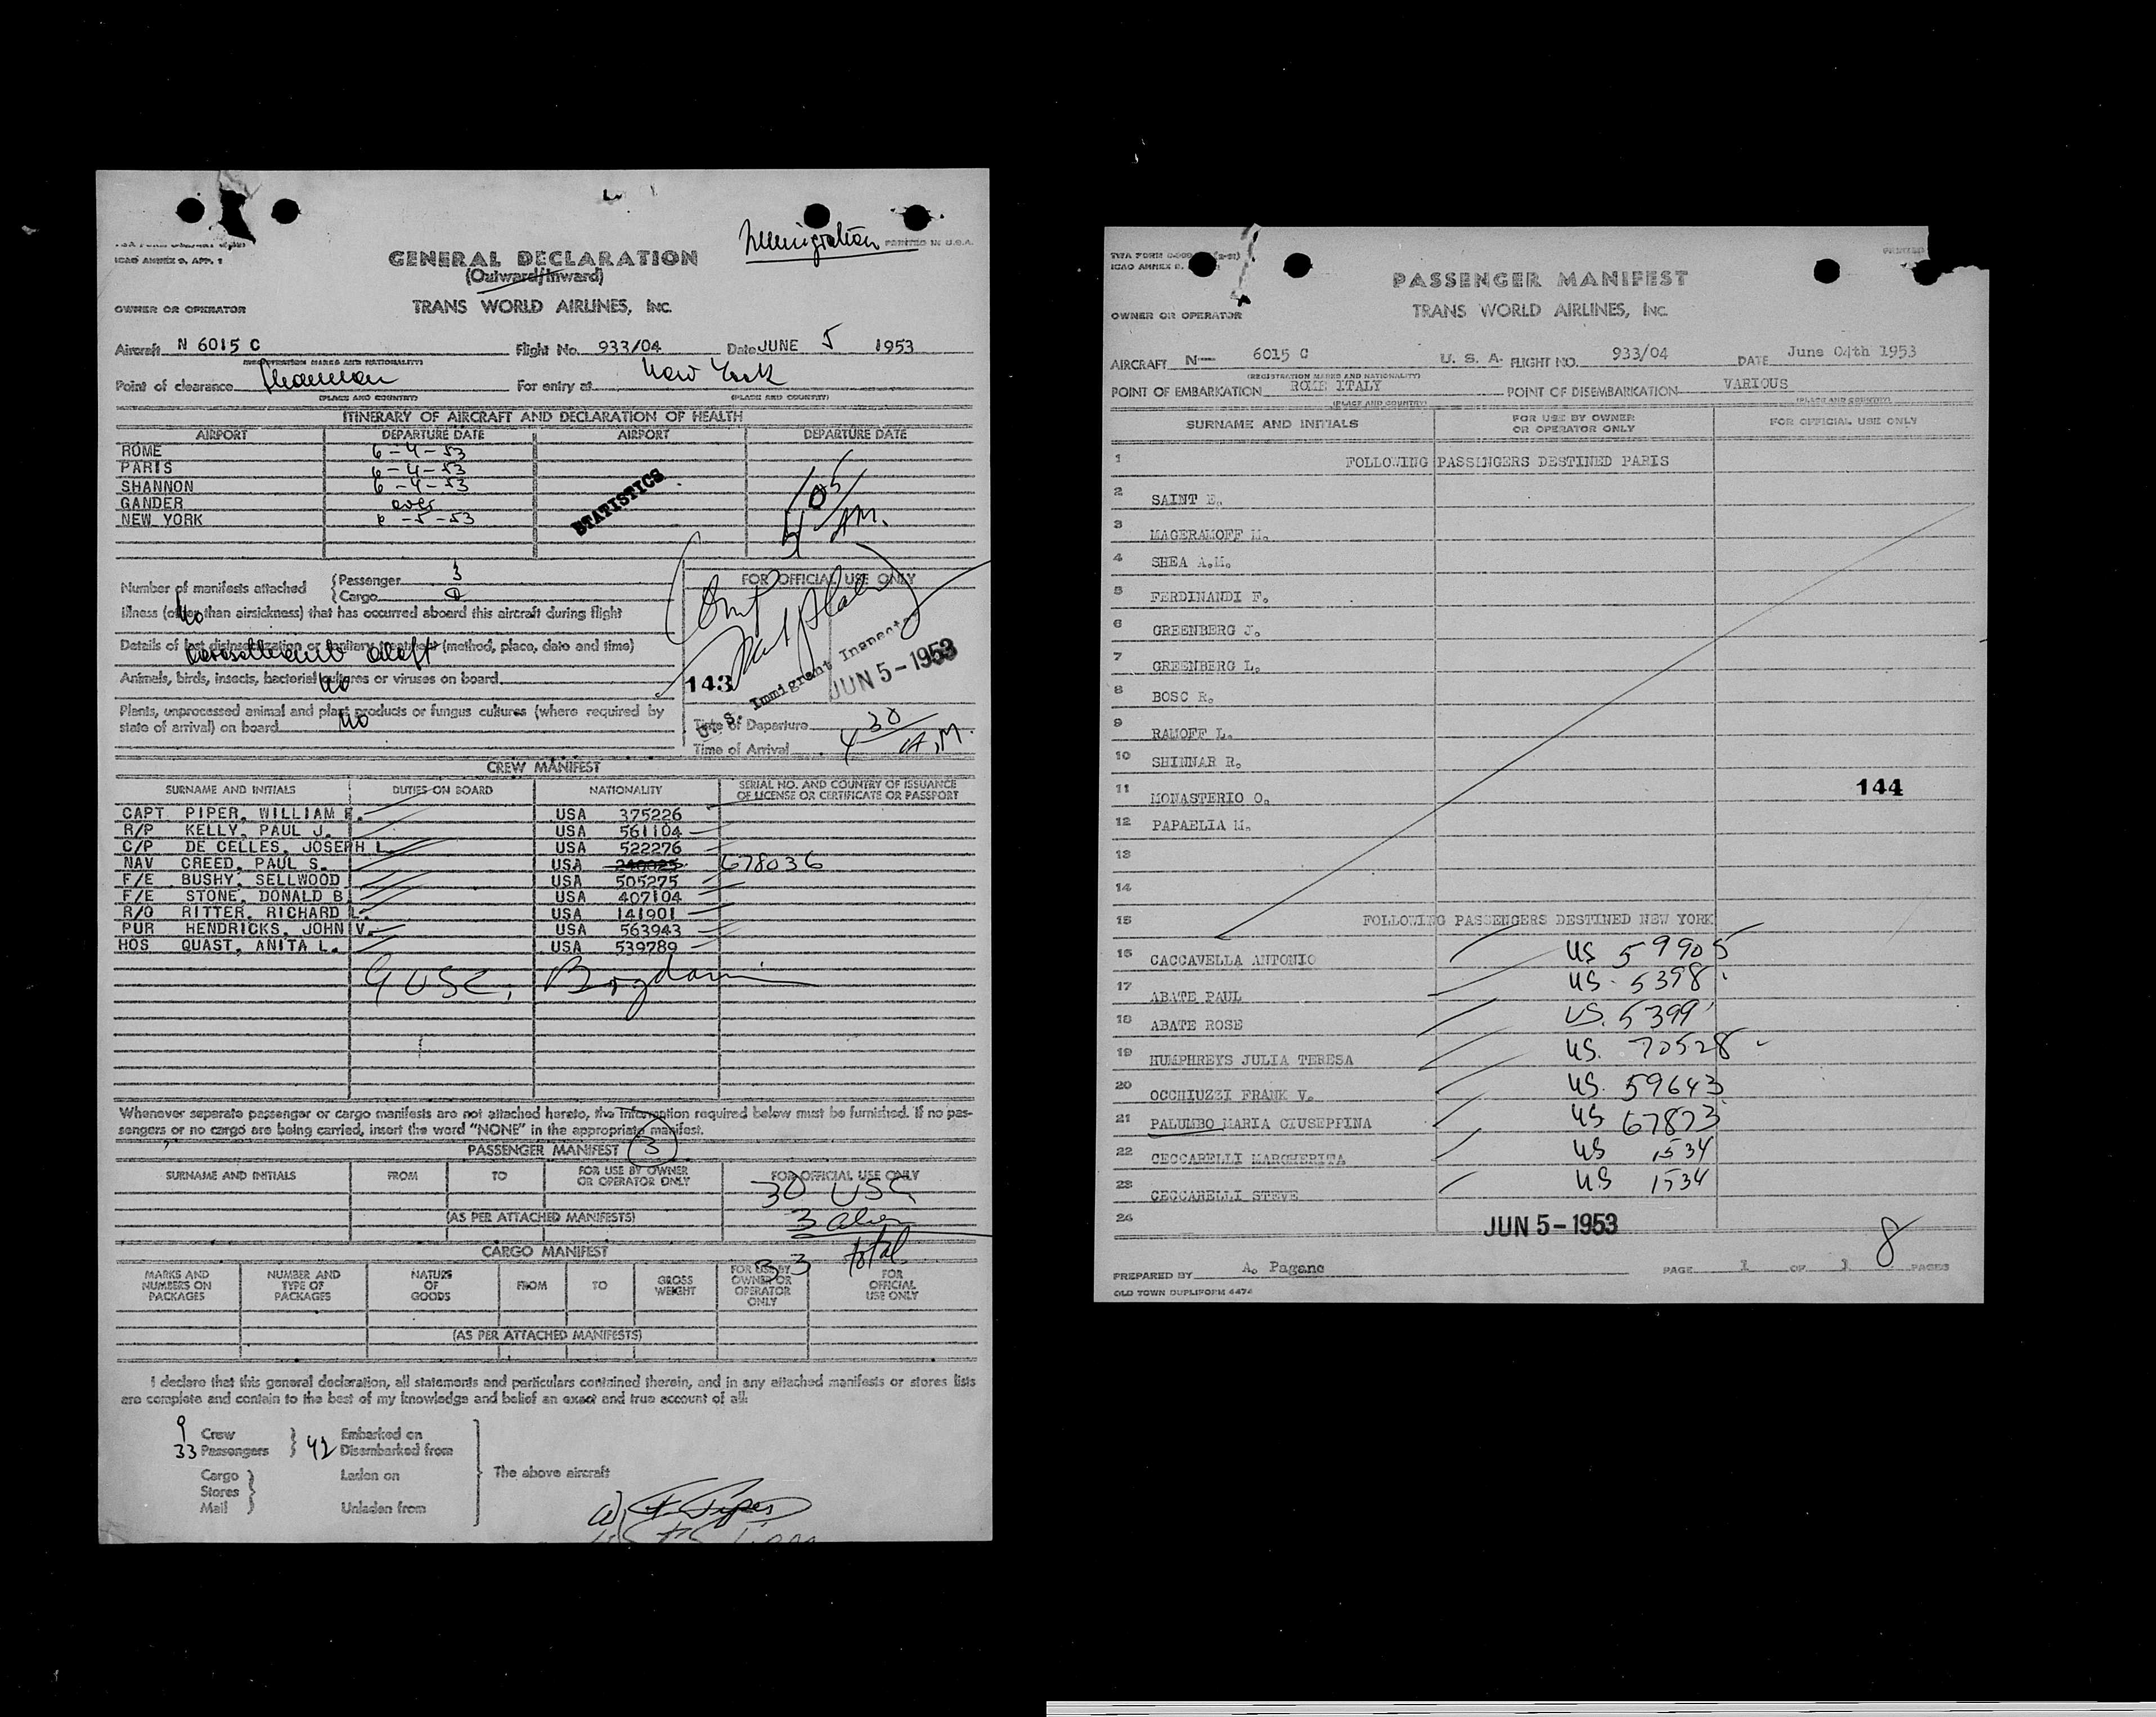 Immigration
PRINTED IN U.S.A.
ICAO ANNEX 9, APP. 1
GENERAL DECLARATION
(Outward/Inward)
OWNER OR OPERATOR TRANS WORLD AIRLINES, INC.
Aircraft N 6015 C Flight No. 933/04 Date JUNE 5 1953
(REGISTRATION MARKS AND NATIONALITY)
Point of clearance Shannon For entry at New York
(PLACE AND COUNTRY) (PLACE AND COUNTRY)
ITINERARY OF AIRCRAFT AND DECLARATION OF HEALTH
AIRPORT DEPARTURE DATE AIRPORT DEPARTURE DATE
ROME 6-4-53
PARIS 6-4-53
SHANNON 6-4-53
GANDER over
NEW YORK 6-5-53
STATISTICS
5 05 AM.
Number of manifests attached { Passenger 3
{ Cargo 0
FOR OFFICIAL USE ONLY
Illness (other than airsickness) that has occurred aboard this aircraft during flight
No
Details of last disinsectization or sanitary treatment (method, place, date and time)
aloft
Animals, birds, insects, bacterial cultures or viruses on board No
143
U. S. Immigrant Inspector
JUN 5 - 1953
Plants, unprocessed animal and plant products or fungus cultures (where required by
state of arrival) on board No
Time of Departure
Time of Arrival 4 30 A.M.
CREW MANIFEST
SURNAME AND INITIALS DUTIES ON BOARD NATIONALITY SERIAL NO. AND COUNTRY OF ISSUANCE
OF LICENSE OR CERTIFICATE OR PASSPORT
CAPT PIPER, WILLIAM F. USA 375226
R/P KELLY, PAUL J. USA 561104
C/P DE CELLES, JOSEPH L. USA 522276
NAV CREED, PAUL S. USA 678036
F/E BUSHY, SELLWOOD USA 505275
F/E STONE, DONALD B. USA 407104
R/O RITTER, RICHARD L. USA 141901
PUR HENDRICKS, JOHN V. USA 563943
HOS QUAST, ANITA L. USA 539789
9 USC,
Whenever separate passenger or cargo manifests are not attached hereto, the information required below must be furnished. If no pas-
sengers or no cargo are being carried, insert the word "NONE" in the appropriate manifest.
PASSENGER MANIFEST 3
SURNAME AND INITIALS FROM TO FOR USE BY OWNER
OR OPERATOR ONLY FOR OFFICIAL USE ONLY
30 USC
(AS PER ATTACHED MANIFESTS) 3 alien
33 total
CARGO MANIFEST
MARKS AND
NUMBERS ON
PACKAGES NUMBER AND
TYPE OF
PACKAGES NATURE
OF
GOODS FROM TO GROSS
WEIGHT FOR USE BY
OWNER OR
OPERATOR
ONLY FOR
OFFICIAL
USE ONLY
(AS PER ATTACHED MANIFESTS)
I declare that this general declaration, all statements and particulars contained therein, and in any attached manifests or stores lists
are complete and contain to the best of my knowledge and belief an exact and true account of all:
9 Crew
33 Passengers } 42 Embarked on
Disembarked from
Cargo
Stores
Mail } Laden on
Unladen from
The above aircraft
TWA FORM
ICAO ANNEX 9,
PRINTED
PASSENGER MANIFEST
OWNER OR OPERATOR TRANS WORLD AIRLINES, INC.
AIRCRAFT N— 6015 C U. S. A. FLIGHT NO. 933/04 DATE June 04th 1953
(REGISTRATION MARKS AND NATIONALITY)
POINT OF EMBARKATION ROME ITALY POINT OF DISEMBARKATION VARIOUS
(PLACE AND COUNTRY) (PLACE AND COUNTRY)
SURNAME AND INITIALS FOR USE BY OWNER
OR OPERATOR ONLY FOR OFFICIAL USE ONLY
1 FOLLOWING PASSENGERS DESTINED PARIS
2 SAINT E.
3 MAGERAMOFF M.
4 SHEA A.M.
5 FERDINANDI F.
6 GREENBERG J.
7 GREENBERG L.
8 BOSC R.
9 RAMOFF L.
10 SHINNAR R.
11 MONASTERIO O. 144
12 PAPAELIA M.
13
14
15 FOLLOWING PASSENGERS DESTINED NEW YORK
16 CACCAVELLA ANTONIO US 59905
17 ABATE PAUL US. 5398
18 ABATE ROSE US. 5399
19 HUMPHREYS JULIA TERESA US. 70528
20 OCCHIUZZI FRANK V. US. 59643
21 PALUMBO MARIA GIUSEPPINA US 67873
22 CECCARELLI MARGHERITA US 1534
23 CECCARELLI STEVE US 1534
24
JUN 5 - 1953
8
PREPARED BY A. Pagano PAGE 1 OF 1 PAGES
OLD TOWN DUPLIFORM 4474